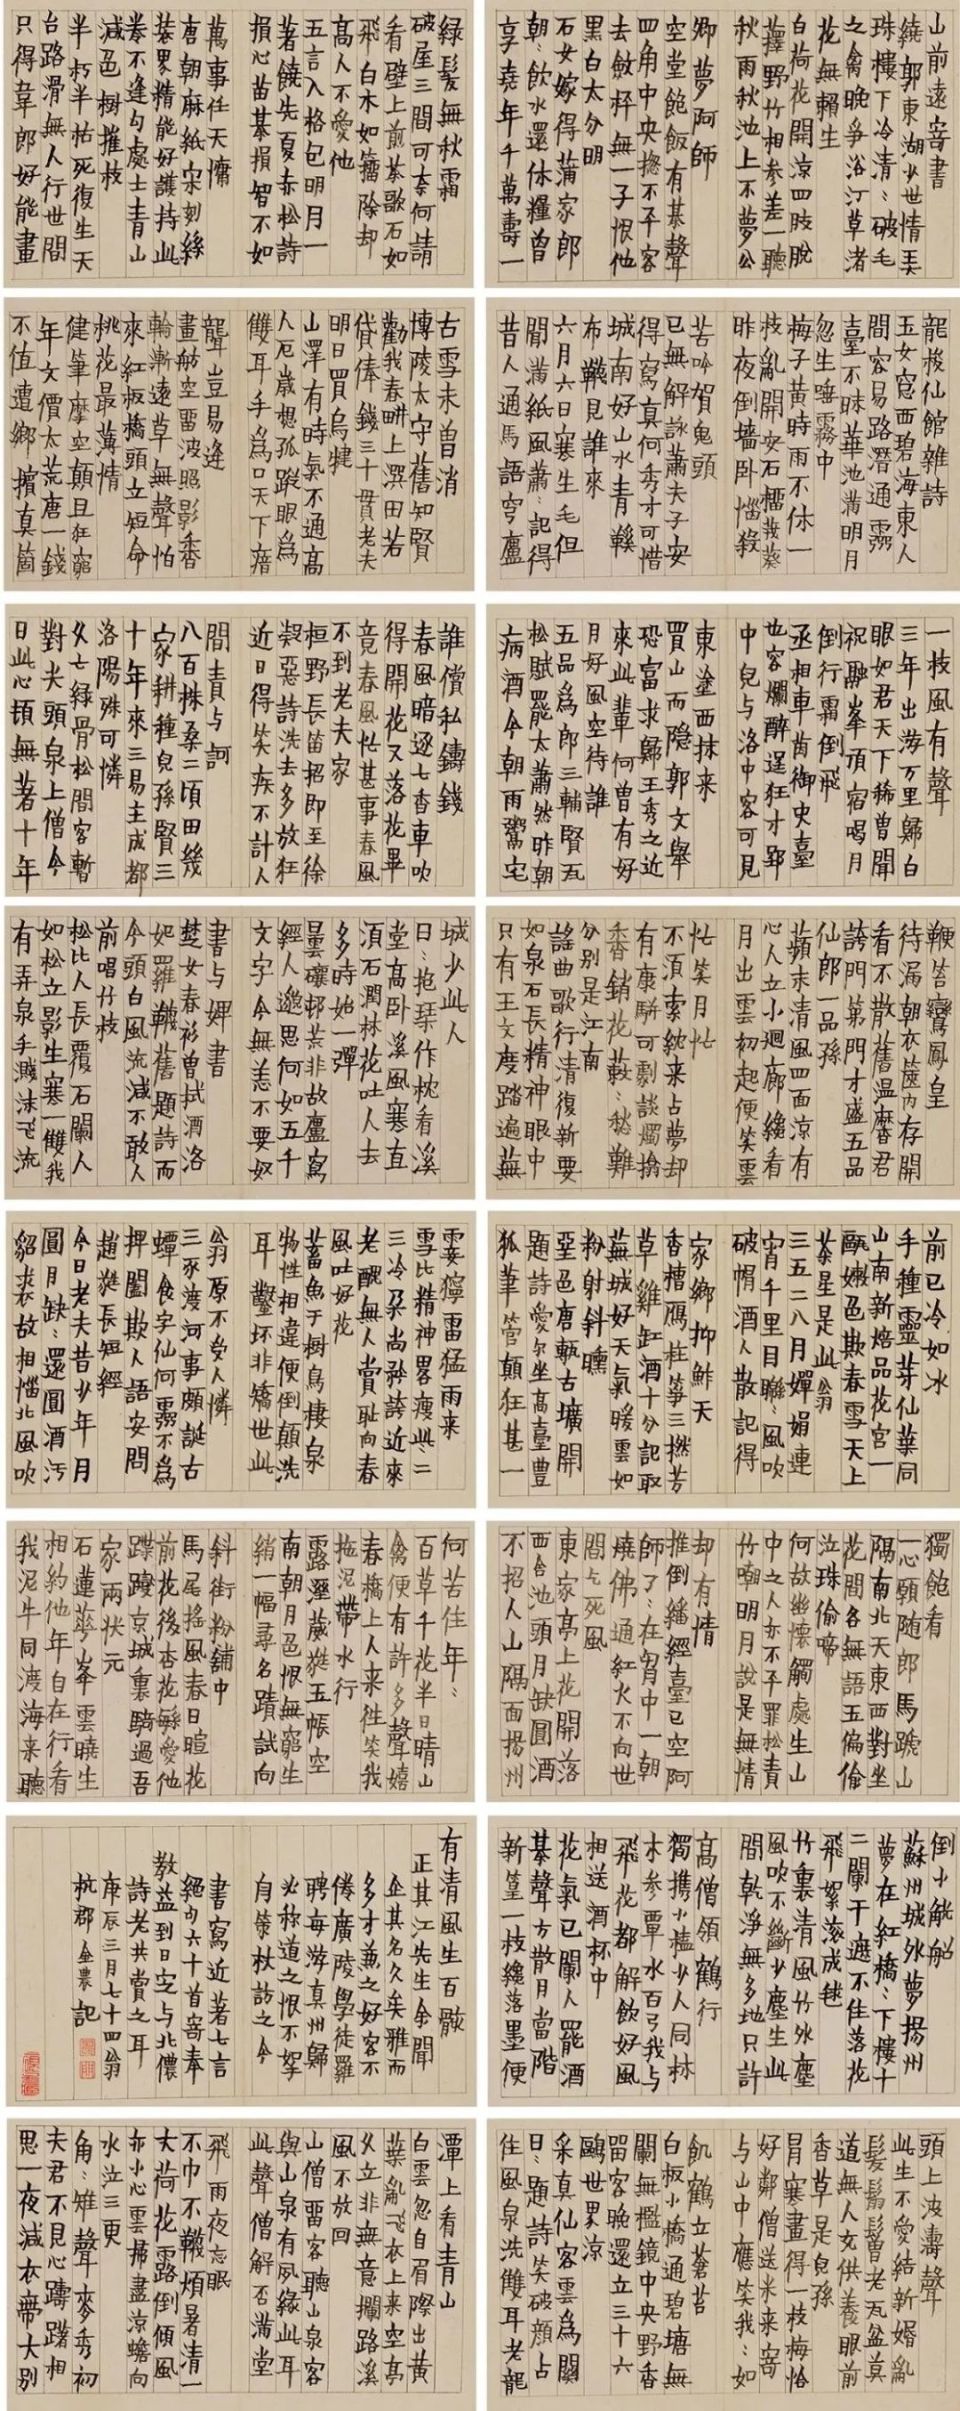 山前遠寄書
繞郭東湖少世情美
珠樓下冷清〻破毛
之禽晚爭浴汀草渚
花無賴生
白荷花開涼四肢脫
籜野竹相參差一聽
秋雨秋池上不夢公
卿夢阿師
空堂飽飯有棊聲
四角中央摠不平客
去斂枰無一子恨他
黑白太分明
石女嫁得蒲家郎
朝〻飲水還休糧曾
享堯年千萬壽一
綠髮無秋霜
破屋三間可奈何請
看壁上煎茶歌石如
飛白木如籀除却
高人不愛他
五言入格包明月一
著饒先夏赤松詩
損心苗棊損智不如
萬事任天慵
唐朝麻紙宋刻絲
裝界精能好護持此
卷不逢勾處士青山
減色樹摧枝
半朽半枯死復生天
台路滑無人行世間
只得韋郎好能畫
龍梭仙館雜詩
玉女窓西碧海東人
間容易路潛通露
臺不昧華池滿明月
忽生唾霧中
梅子黃時雨不休一
枝亂開安石榴我葵
昨夜倒墻卧惱殺
苦吟賀鬼頭
已無解詠蕭夫子安
得寫真何秀才可惜
城南好山水青鞵
布襪見誰來
六月六日寒生毛但
聞滿紙風蕭〻記得
昔人通馬語穹廬
古雪未曾消
博陵太守舊知賢
勸我春畊上溟田若
貸俸錢三十貫老夫
明日買烏犍
山澤有時氣不通高
人厄歲想孤蹤眼為
雙耳手為口天下瘖
聾豈易逢
畫舫空留波照影香
輪漸遠草無聲怕
來紅板橋頭立短命
桃花最薄情
健筆摩空顛且狂窮
年文價太荒唐一錢
不值遭鄉擯真箇
一枝風有聲
三年出游万里歸白
眼如君天下稀曾聞
祝融峯頂宿喝月
倒行霜倒飛
丞相車茵御史臺
也容爛醉逞狂才郢
中兒与洛中客可見
東塗西抹來
買山而隐郭文舉
恐富求歸王秀之近
來此輩何曾有好
月好風空待誰
五品為郎三輔賢瓦
松賦罷太蕭然昨朝
病酒今朝雨鬻宅
誰償私鑄錢
春風暗逐七香車吹
得開花又落花畢
竟春風忙甚事春風
不到老夫家
桓野長笛招即至徐
凝惡詩洗去多放狂
近日得笑疾不計人
間責与訶
八百株桑二頃田幾
家耕種兒孫賢三
十年來三易主成都
洛陽殊可憐
久亡綠骨松間客暫
對尖頭泉上僧今
日此心頓無著十年
鞭笞鸞鳳皇
待漏朝衣篋內存開
看不散舊温黁君
誇門第門才盛五品
仙郎一品孫
蘋末清風四面涼有
心人立小迴廊纔看
月出雲初起便笑雲
忙笑月忙
不須索紞来占夢却
有康駢可劇談燭掐
香銷花藪〻愁難
分别是江南
謠曲歌行清復新要
如泉石長精神眼中
只有王文度踏遍蕪
城少此人
日〻抱琹作枕看溪
堂高卧溪風寒直
須石潤林花吐人去
多時始一彈
曇礦邨荒非故廬寫
經人邈思何如五千
文字今無恙不要奴
書與婢書
楚女春衫曾拭酒洛
妃羅韈舊題詩而
今頭白風流減不敢人
前唱竹枝
松比人長覆石闌人
如松立影生寒一雙我
有弄泉手濺沫飞流
前已冷如冰
手種靈芽仙葉同
山南新焙品花宮一
甌嫩色欺春雪天上
茶星是此翁
三五二八月嬋娟連
宵千里目聯〻風吹
破帽酒人散記得
家鄉抑鮓天
香檀鴈柱箏三撚芳
草雞缸酒十分記取
蕪城好天氣暖雲如
粉射斜曛
堊邑唐甎古壙開
題詩愛尔坐高臺豊
狐筆管顛狂甚一
霎獰雷猛雨来
雪比精神畧瘦此〻二
三冷朶尚矜誇近來
老醜無人賞耻向春
風吐好花
蓄魚于樹鳥棲泉
物性相違便倒顛洗
耳鑿坏非矯世此
翁原不受人憐
三豕渡河事頗誕古
蟫食字仙何靈不為
捭闔欺人語安問
趙蕤長短經
今日老夫昔少年月
圓月缺〻還圓酒汚
貂裘故相惱北風吹
獨飽看
一心願随郎馬蹏山
隔南北天東西對坐
花間各無語玉偏偷
泣珠偷啼
何故幽懷觸處生山
中之人亦不平罪松責
竹嘲明月說是無情
却有情
推倒繙經臺已空阿
師了〻在胷中一朝
燒佛通紅火不向世
間乞死風
東家亭上花開落
西舍池頭月缺圓酒
不招人山隔面揚州
何苦住年〻
百草千花半日晴山
禽便有許多聲嬉
春橋上人来往笑我
拖泥帶水行
露溼葳蕤五帳空
南朝月邑恨無窮生
綃一幅尋名蹟試向
斜街粉鋪中
馬尾搖風春日暄花
前花後杏花毓愛他
蹀躞京城裏騎過吾
家兩狀元
石蓮華峯雲曉生
相約他年自在行看
我泥牛同渡海来聽
倒小觥船
蘇州城外夢揚州
夢在紅橋〻下樓十
二闌干遮不住落花
飛絮滚成毬
竹裏清風竹外塵
風吹不斷少塵生此
間乾淨無多地只許
高僧領鶴行
獨携小榼少人同林
木参覃水百弓我与
飛花都解飲好風
相送酒杯中
花氣已闌人罷酒
棊聲方散月當階
新篁一枝纔落墨便
有清風生百骸
正其江先生余聞
企其名久矣雅而
多才兼之好客不
倦廣陵學徒羅
聘每游真州歸
必称道之恨不挐
自策杖訪之今
書寫近著七言
絕句六十首寄奉
教益到日定与北儂
詩老共賞之耳
庚辰三月七十四翁
杭郡金農記
頭上波濤聲
此生不愛結新婚亂
髮鬅鬙老瓦盆莫
道無人充供養眼前
香草是兒孫
冐寒畫得一枝梅恰
好鄰僧送米來寄
与山中應笑我〻如
飢鶴立蒼苔
白板小橋通碧塘無
闌無檻鏡中央野香
留客晚還立三十六
鷗世界涼
采真仙客雲為關
日〻題詩笑破顔占
住風泉洗雙耳老龍
潭上看青山
白雲忽自眉際出黃
葉亂飞衣上来空亭
久立非無意攔路溪
風不放回
山僧留客聽山泉客
與山泉有夙緣此耳
此聲僧解否滿堂
飛雨夜忘眠
不巾不韈煩暑清一
大荷花露倒傾風
亦小心雲掃盡涼蟾向
水泣三更
角〻雉聲麥秀初
夫君不見心躊躇相
思一夜減衣帶大別